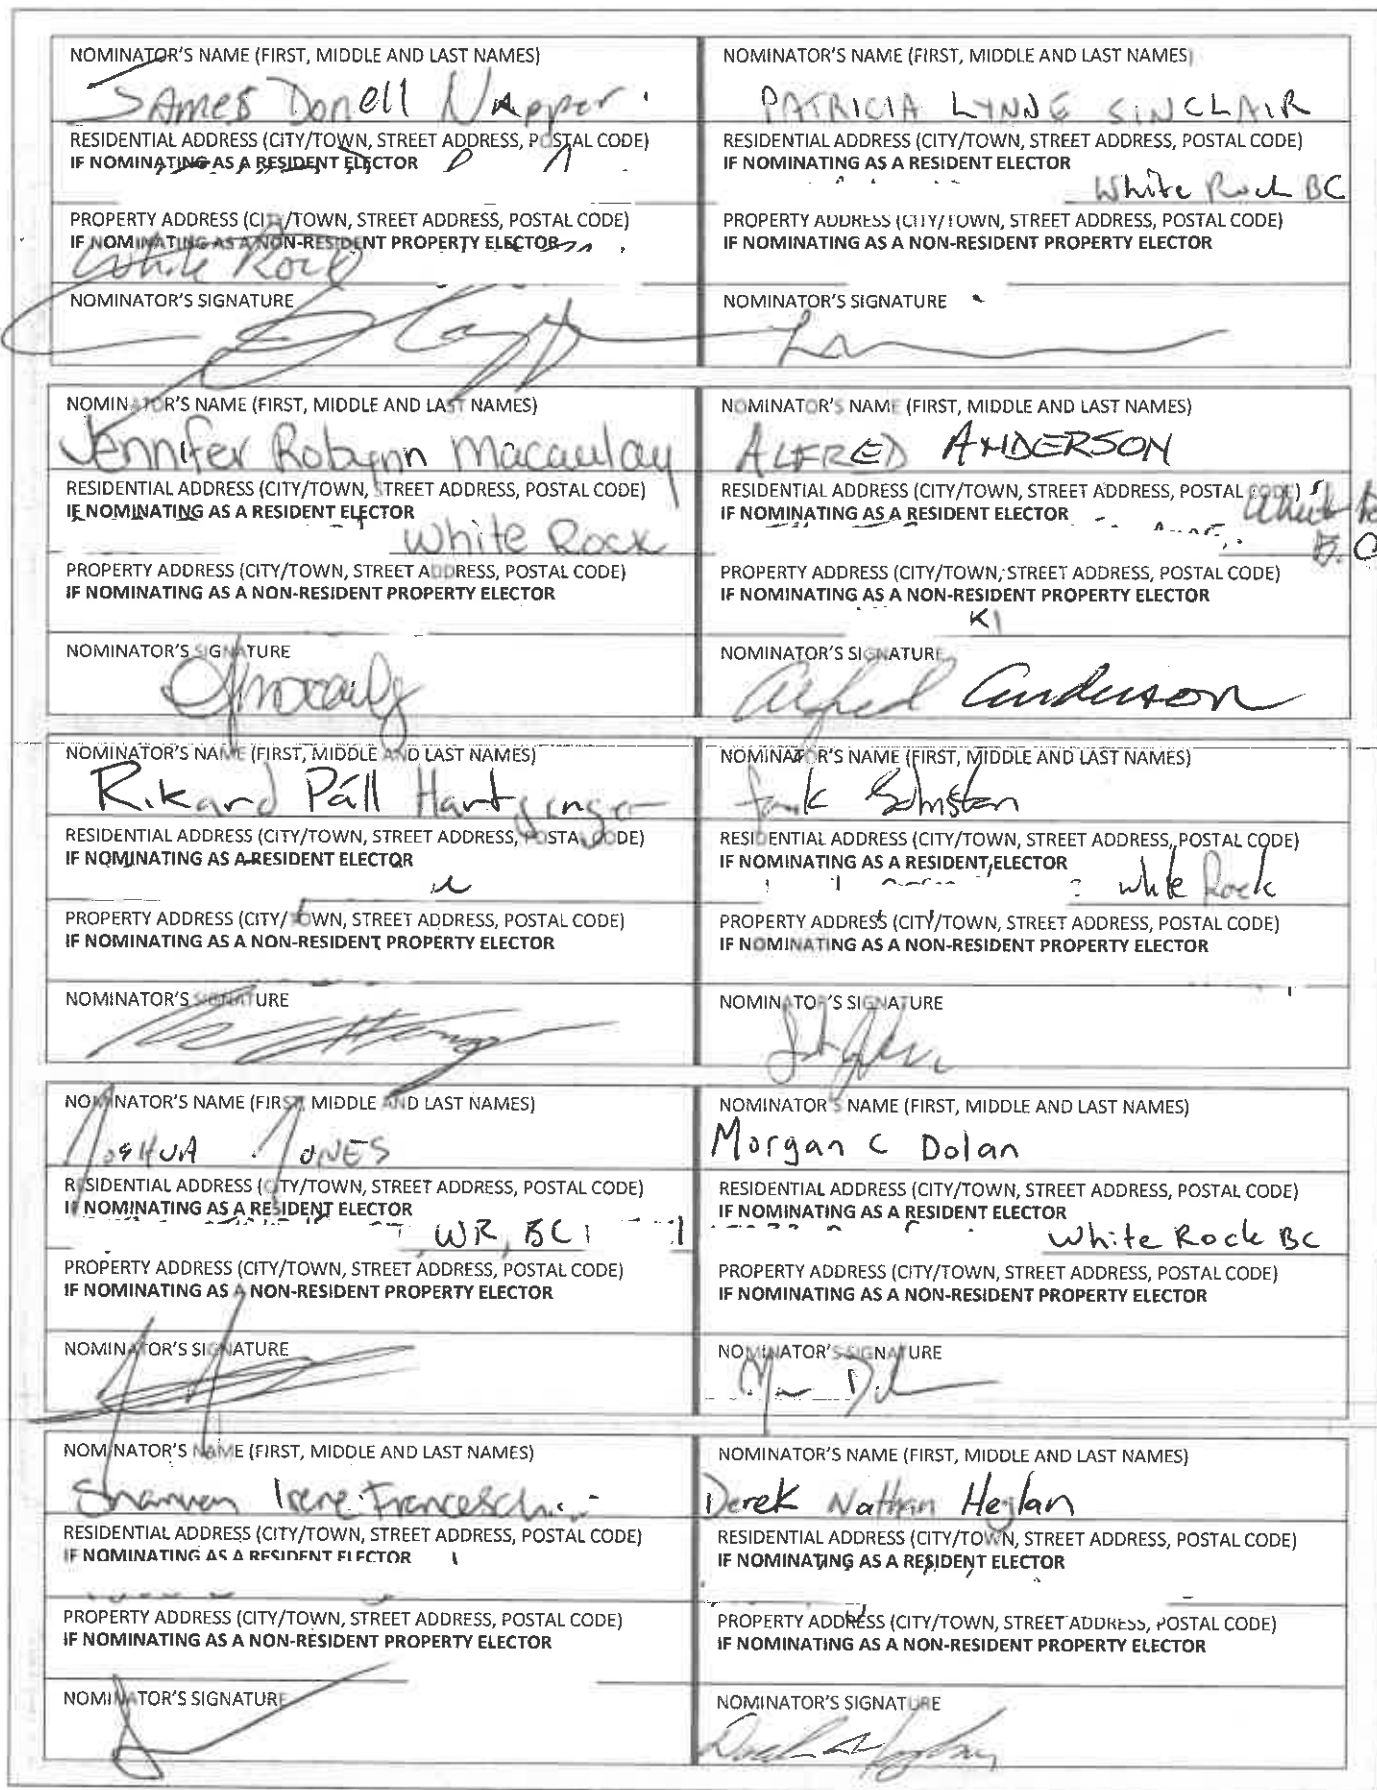 NOMINATOR'S NAME (FIRST, MIDDLE AND LAST NAMES)
James Donell Napper
RESIDENTIAL ADDRESS (CITY/TOWN, STREET ADDRESS, POSTAL CODE)
IF NOMINATING AS A RESIDENT ELECTOR
PROPERTY ADDRESS (CITY/TOWN, STREET ADDRESS, POSTAL CODE)
IF NOMINATING AS A NON-RESIDENT PROPERTY ELECTOR
White Rock
NOMINATOR'S SIGNATURE
NOMINATOR'S NAME (FIRST, MIDDLE AND LAST NAMES)
PATRICIA LYNNE SINCLAIR
RESIDENTIAL ADDRESS (CITY/TOWN, STREET ADDRESS, POSTAL CODE)
IF NOMINATING AS A RESIDENT ELECTOR
White Rock BC
PROPERTY ADDRESS (CITY/TOWN, STREET ADDRESS, POSTAL CODE)
IF NOMINATING AS A NON-RESIDENT PROPERTY ELECTOR
NOMINATOR'S SIGNATURE
NOMINATOR'S NAME (FIRST, MIDDLE AND LAST NAMES)
Jennifer Robynn Macaulay
RESIDENTIAL ADDRESS (CITY/TOWN, STREET ADDRESS, POSTAL CODE)
IF NOMINATING AS A RESIDENT ELECTOR
White Rock
PROPERTY ADDRESS (CITY/TOWN, STREET ADDRESS, POSTAL CODE)
IF NOMINATING AS A NON-RESIDENT PROPERTY ELECTOR
NOMINATOR'S SIGNATURE
NOMINATOR'S NAME (FIRST, MIDDLE AND LAST NAMES)
ALFRED ANDERSON
RESIDENTIAL ADDRESS (CITY/TOWN, STREET ADDRESS, POSTAL CODE)
IF NOMINATING AS A RESIDENT ELECTOR
PROPERTY ADDRESS (CITY/TOWN, STREET ADDRESS, POSTAL CODE)
IF NOMINATING AS A NON-RESIDENT PROPERTY ELECTOR
NOMINATOR'S SIGNATURE
Alfred Anderson
NOMINATOR'S NAME (FIRST, MIDDLE AND LAST NAMES)
Rikard Páll
RESIDENTIAL ADDRESS (CITY/TOWN, STREET ADDRESS, POSTAL CODE)
IF NOMINATING AS A RESIDENT ELECTOR
PROPERTY ADDRESS (CITY/TOWN, STREET ADDRESS, POSTAL CODE)
IF NOMINATING AS A NON-RESIDENT PROPERTY ELECTOR
NOMINATOR'S SIGNATURE
NOMINATOR'S NAME (FIRST, MIDDLE AND LAST NAMES)
RESIDENTIAL ADDRESS (CITY/TOWN, STREET ADDRESS, POSTAL CODE)
IF NOMINATING AS A RESIDENT ELECTOR
White Rock
PROPERTY ADDRESS (CITY/TOWN, STREET ADDRESS, POSTAL CODE)
IF NOMINATING AS A NON-RESIDENT PROPERTY ELECTOR
NOMINATOR'S SIGNATURE
NOMINATOR'S NAME (FIRST, MIDDLE AND LAST NAMES)
JOSHUA JONES
RESIDENTIAL ADDRESS (CITY/TOWN, STREET ADDRESS, POSTAL CODE)
IF NOMINATING AS A RESIDENT ELECTOR
WR, BC
PROPERTY ADDRESS (CITY/TOWN, STREET ADDRESS, POSTAL CODE)
IF NOMINATING AS A NON-RESIDENT PROPERTY ELECTOR
NOMINATOR'S SIGNATURE
NOMINATOR'S NAME (FIRST, MIDDLE AND LAST NAMES)
Morgan C Dolan
RESIDENTIAL ADDRESS (CITY/TOWN, STREET ADDRESS, POSTAL CODE)
IF NOMINATING AS A RESIDENT ELECTOR
White Rock BC
PROPERTY ADDRESS (CITY/TOWN, STREET ADDRESS, POSTAL CODE)
IF NOMINATING AS A NON-RESIDENT PROPERTY ELECTOR
NOMINATOR'S SIGNATURE
NOMINATOR'S NAME (FIRST, MIDDLE AND LAST NAMES)
Irene Franceschini
RESIDENTIAL ADDRESS (CITY/TOWN, STREET ADDRESS, POSTAL CODE)
IF NOMINATING AS A RESIDENT ELECTOR
PROPERTY ADDRESS (CITY/TOWN, STREET ADDRESS, POSTAL CODE)
IF NOMINATING AS A NON-RESIDENT PROPERTY ELECTOR
NOMINATOR'S SIGNATURE
NOMINATOR'S NAME (FIRST, MIDDLE AND LAST NAMES)
Derek Nathan
RESIDENTIAL ADDRESS (CITY/TOWN, STREET ADDRESS, POSTAL CODE)
IF NOMINATING AS A RESIDENT ELECTOR
PROPERTY ADDRESS (CITY/TOWN, STREET ADDRESS, POSTAL CODE)
IF NOMINATING AS A NON-RESIDENT PROPERTY ELECTOR
NOMINATOR'S SIGNATURE